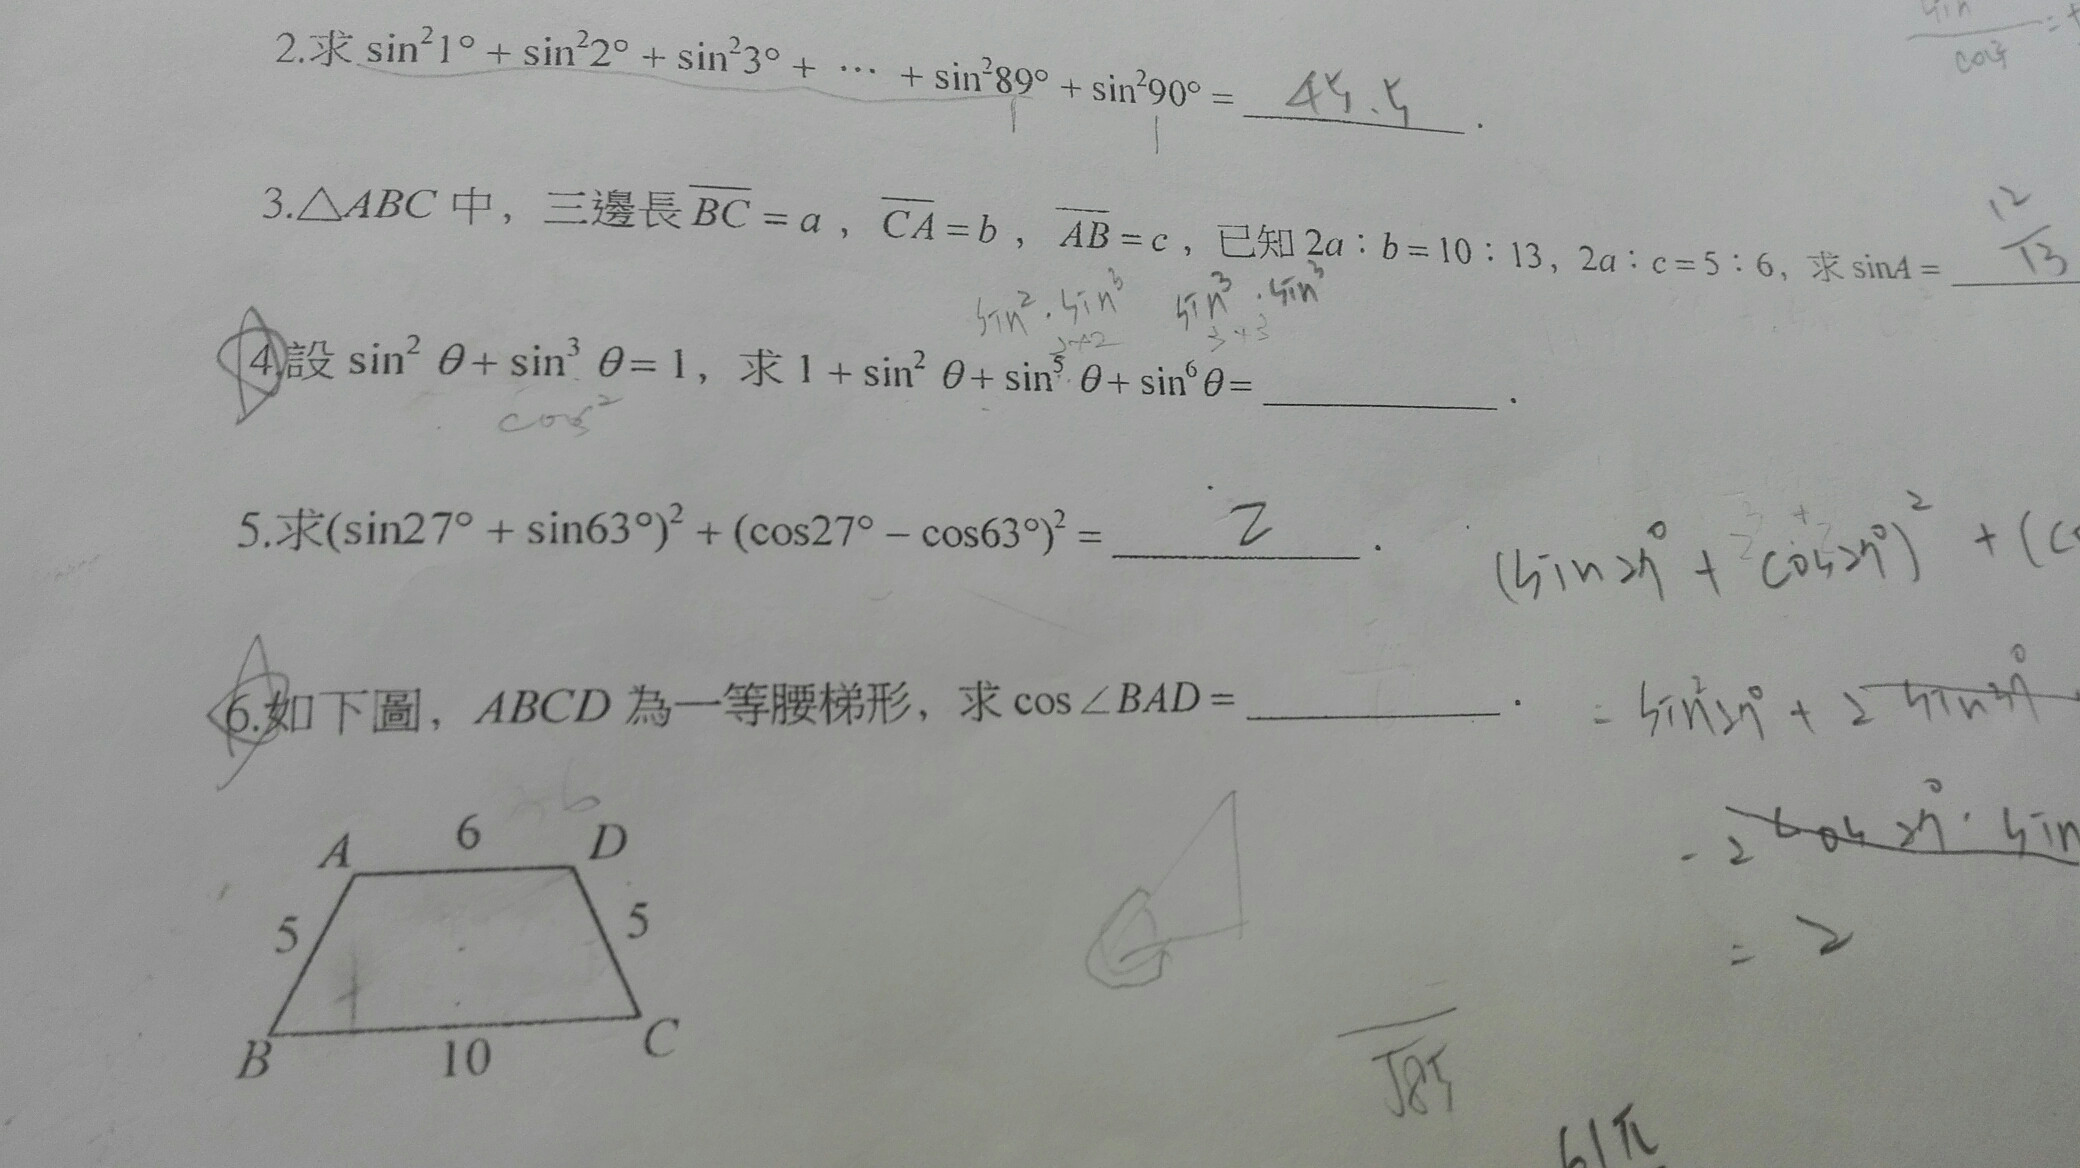 sin
cos =
2.求 sin²1° + sin²2° + sin²3° + ⋯ + sin²89° + sin²90° = 45.5 .
3.△ABC 中，三邊長 BC = a，CA = b，AB = c，已知 2a：b = 10：13，2a：c = 5：6，求 sinA = 12/13
sin² · sin³ sin³ · sin³
3+2 3+3
4.設 sin² θ + sin³ θ = 1，求 1 + sin² θ + sin⁵ θ + sin⁶ θ = .
cos²
5.求(sin27° + sin63°)² + (cos27° − cos63°)² = 2 .
(sin27° + cos27°)² + (c
6.如下圖，ABCD 為一等腰梯形，求 cos∠BAD = .
= sin²27° + 2 sin27°
- 2 cos27° · sin
= 2
6
A 6 D
5 5
B 10 C
√85
61π